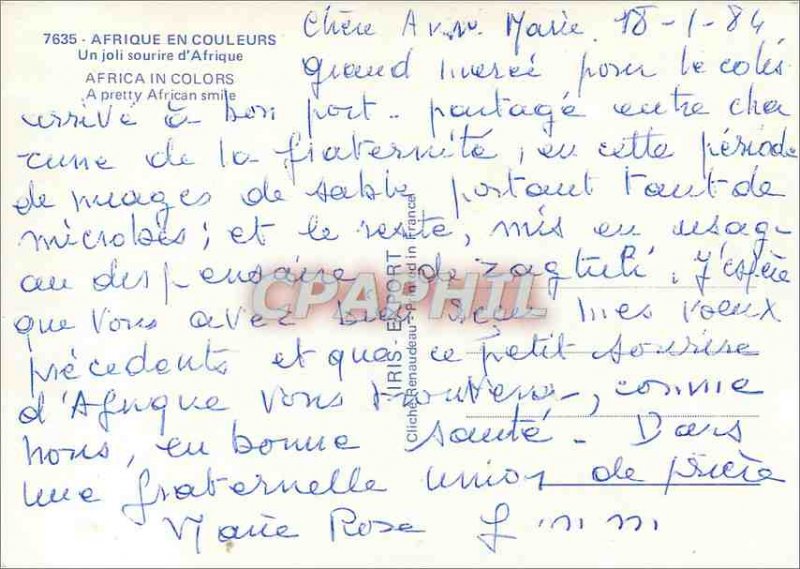 7635 - AFRIQUE EN COULEURS
Un joli sourire d'Afrique
AFRICA IN COLORS
A pretty African smile
Chère Marie 18-1-84
grand merci pour le colis
arrivé à bon port - partagé entre cha
cune de la fraternité, en cette période
de nuages de sable portant tant de
microbes; et le reste, mis en usag-
au dispensaire de zagtuli. J'espère
que vous avez bien reçu mes voeux
précédents et que ce petit sourire
d'Afrique vous trouvera, comme
nous, en bonne santé - Dans
une fraternelle union de prière
Marie Rose
IRIS - EXPORT
Cliché Renaudeau - Printed in France
CPAPHIL